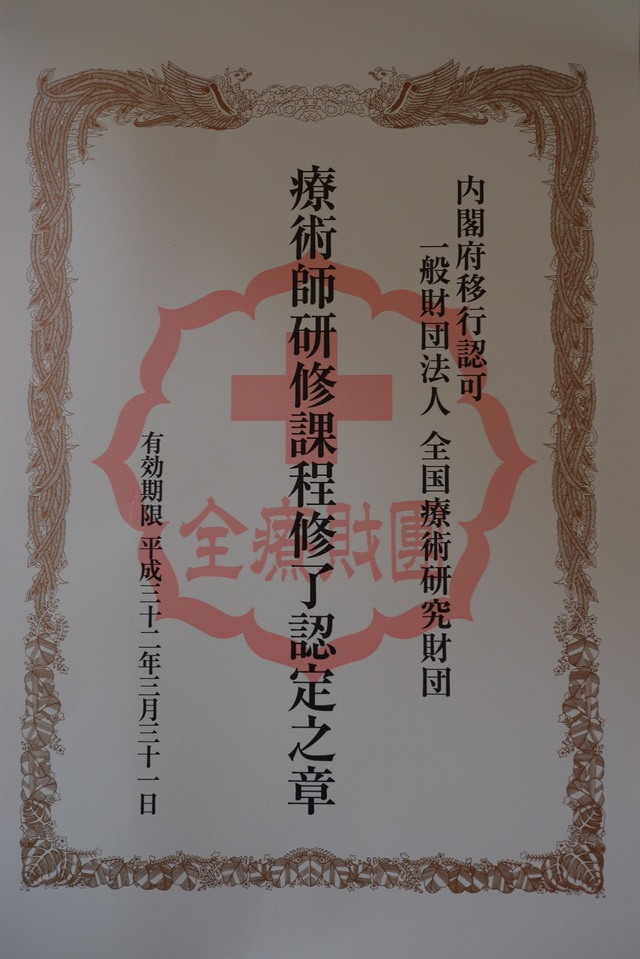 内閣府移行認可
一般財団法人 全国療術研究財団
療術師研修課程修了認定之章
有効期限 平成三十二年三月三十一日
全療財團